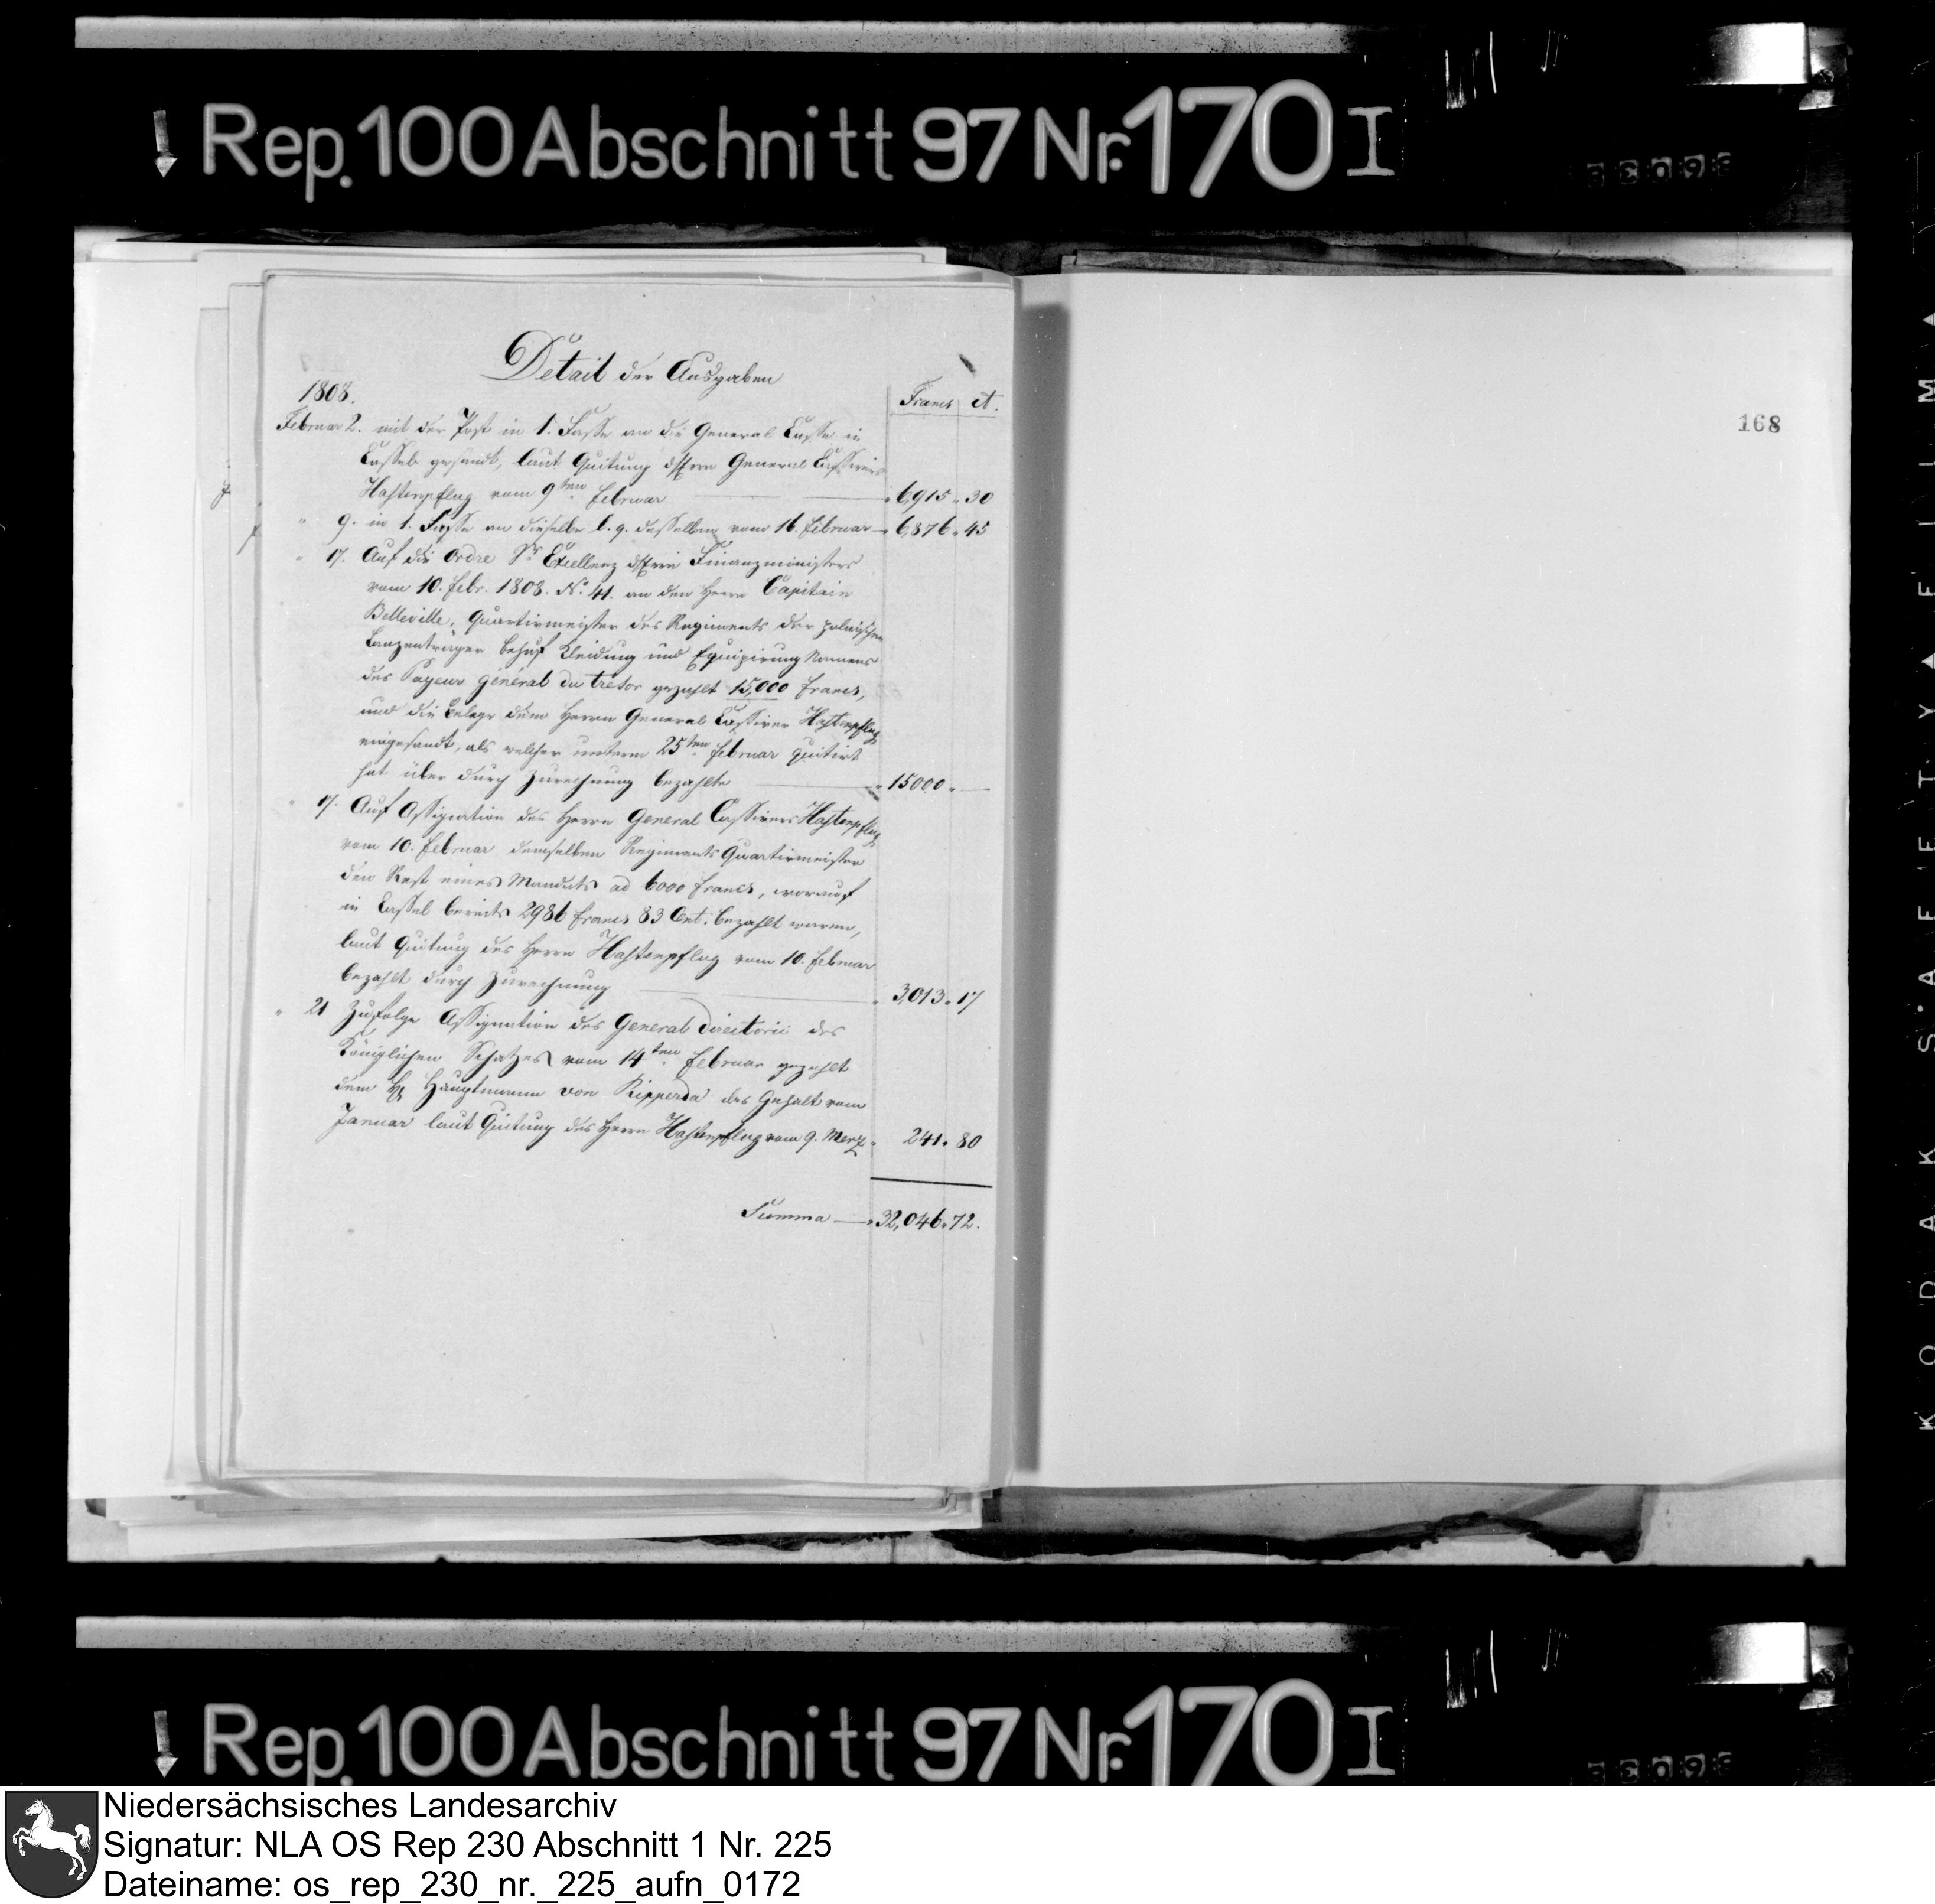 Rep. 100 Abschnitt 97 Nr. 170 I
168
Detail der Ausgaben
1808.
Francs ct.
Februar 2. mit der Post in 1. Fasse an die General Casse in
Cassel gesandt, laut Quitung des Herrn General Cassirers
Hastenpflug vom 9ten Februar 6,915. 30
" 9. in 1. Fasse an dieselbe l. q. desselben vom 16. Februar 6,876. 45
" 17. Auf die Ordre Sr Excellenz des Herrn Finanzministers
vom 10. Febr. 1808. No. 41. an den Herrn Capitain
Belleville, Quartirmeister des Regiments der polnischen
Lanzenträger behuf Kleidung und Equipirung Namens
des Payeur général du tresor gezahlt 15,000 Francs,
und die Belege dem Herrn General Cassirer Hastenpflug
eingesandt, als welcher unterm 25ten Februar quitirt
hat über durch Zurechnung bezahlte 15000. —
" 17. Auf Assignation des Herrn General Cassirers Hastenpflug
vom 10. Februar demselben Regiments Quartirmeister
den Rest eines Mandats ad 6000 Francs, worauf
in Cassel bereits 2986 Francs 83 Cent. bezahlt waren,
laut Quitung des Herrn Hastenpflug vom 10. Februar
bezahlt durch Zurechnung 3,013. 17
" 21 Zufolge Assignation des General directorii des
Königlichen Schatzes vom 14ten Februar gezahlt
dem H. Hauptmann von Ripperda das Gehalt vom
Januar laut Quitung des Herrn Hastenpflug vom 9. Merz 241. 80
Summa 32,046. 72.
KODAK SAFETY FILM
Rep. 100 Abschnitt 97 Nr. 170 I
Niedersächsisches Landesarchiv
Signatur: NLA OS Rep 230 Abschnitt 1 Nr. 225
Dateiname: os_rep_230_nr._225_aufn_0172